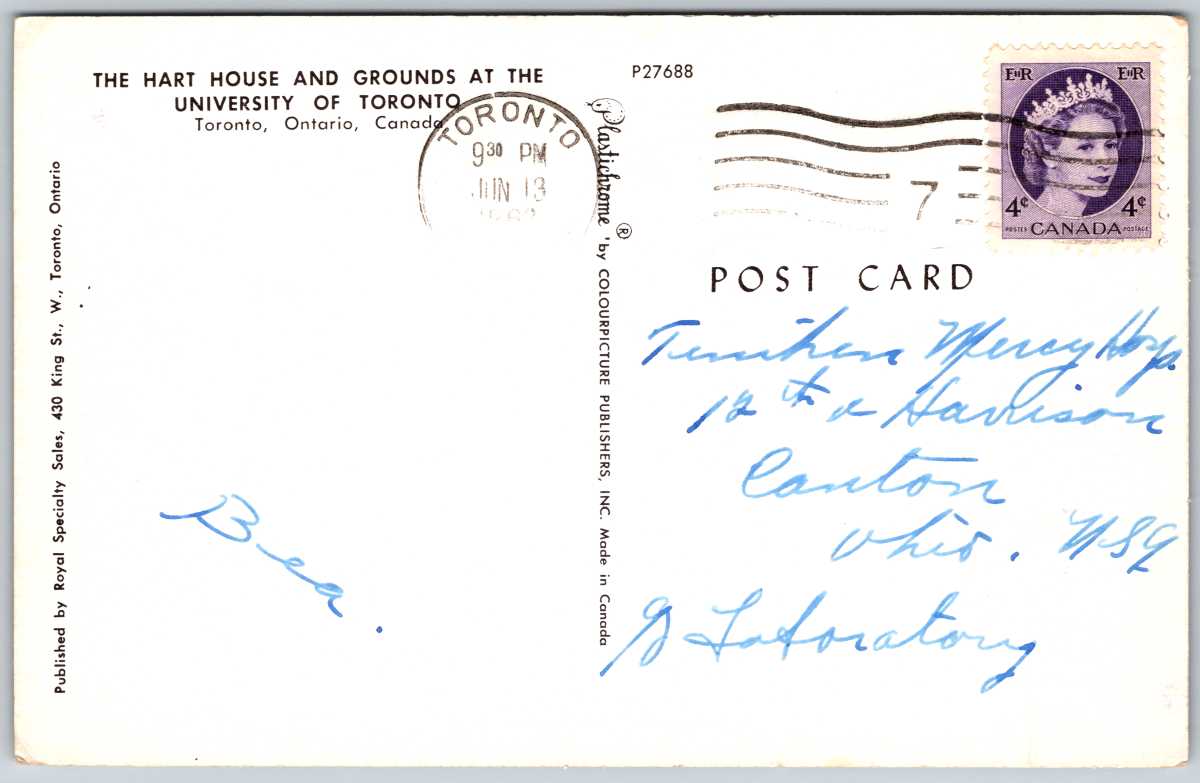 THE HART HOUSE AND GROUNDS AT THE
UNIVERSITY OF TORONTO
Toronto, Ontario, Canada
P27688
TORONTO
9 30 PM
JUN 13
7
EIIR EIIR
4¢ 4¢
POSTES CANADA POSTAGE
Published by Royal Specialty Sales, 430 King St., W., Toronto, Ontario
Plastichrome ® by COLOURPICTURE PUBLISHERS, INC. Made in Canada
POST CARD
Mercy Hosp.
12th & Harrison
Canton
Ohio. USA
Laboratory
Bea.